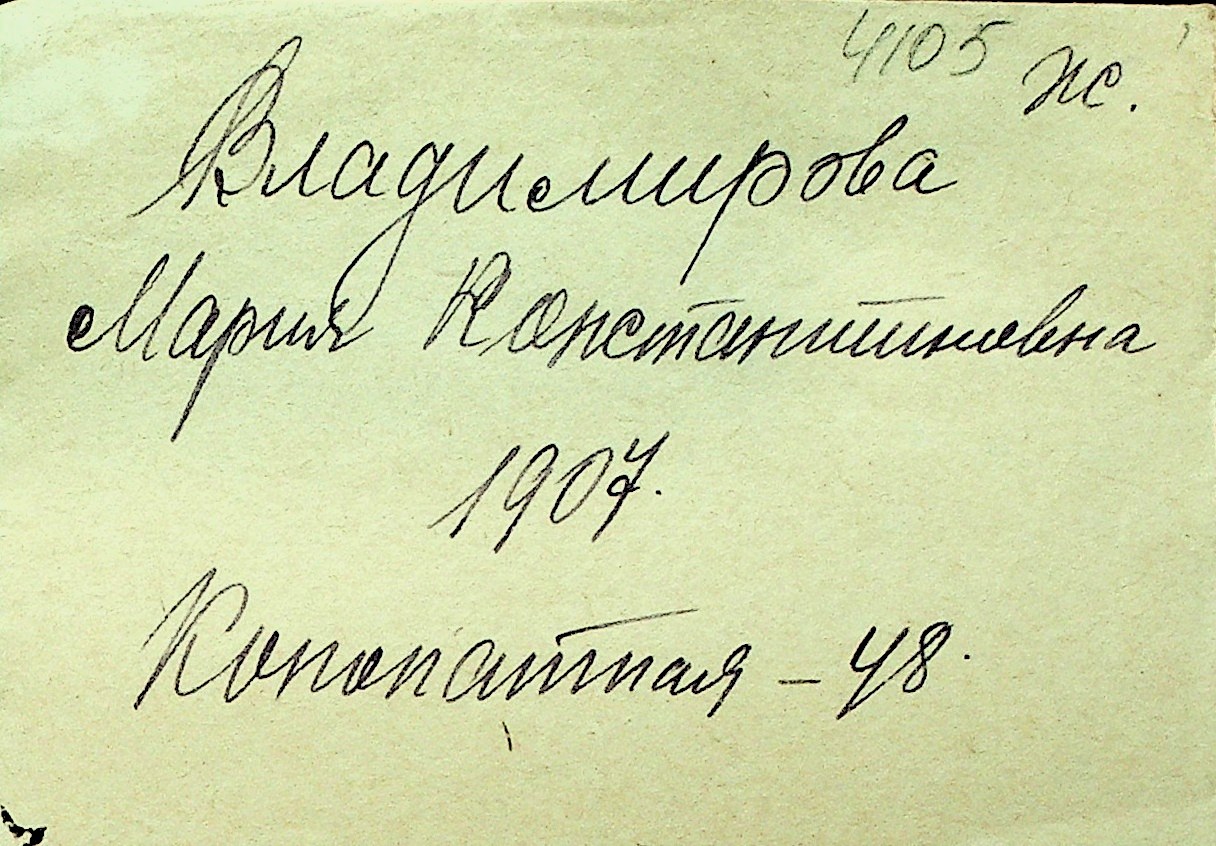 4105 ж.
Владимирова
Мария Константиновна
1907.
Конопатная - 48.